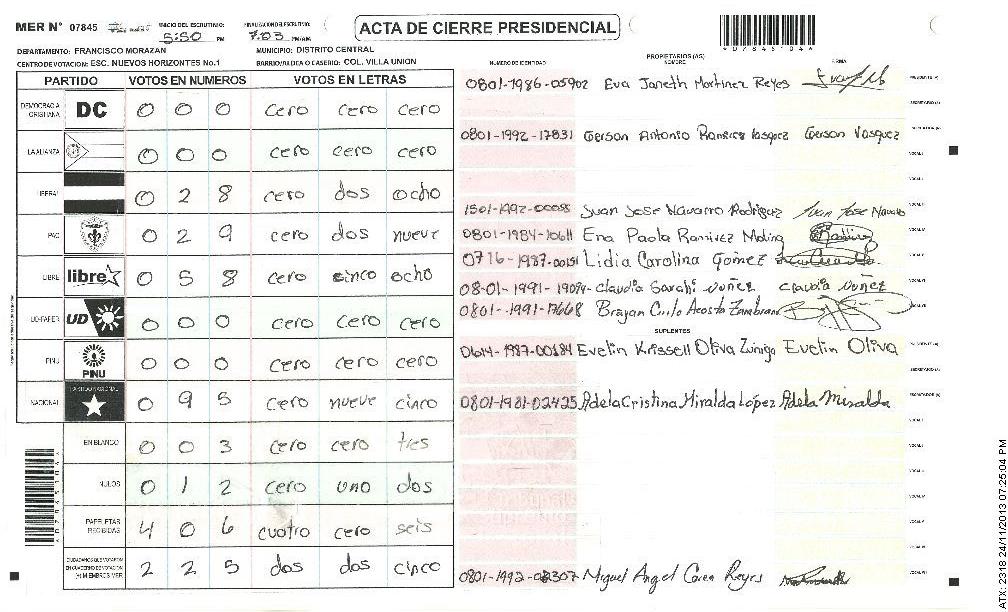 MER N° 07845 INICIO DEL ESCRUTINIO: 5:50 PM FINALIZACION ESCRUTINIO: 7:03 PM/AM
ACTA DE CIERRE PRESIDENCIAL
DEPARTAMENTO: FRANCISCO MORAZAN MUNICIPIO: DISTRITO CENTRAL
CENTRO DE VOTACION: ESC. NUEVOS HORIZONTES No.1 BARRIO/ALDEA O CASERIO: COL. VILLA UNION
PARTIDO VOTOS EN NUMEROS VOTOS EN LETRAS
DEMOCRACIA CRISTIANA DC 0 0 0 cero cero cero
LA ALIANZA 0 0 0 cero cero cero
LIBERAL 0 2 8 cero dos ocho
PAC 0 2 9 cero dos nueve
LIBRE libre 0 5 8 cero cinco ocho
UD-FAPER UD 0 0 0 cero cero cero
PINU PINU 0 0 0 cero cero cero
NACIONAL PARTIDO NACIONAL 0 9 5 cero nueve cinco
EN BLANCO 0 0 3 cero cero tres
NULOS 0 1 2 cero uno dos
PAPELETAS RECIBIDAS 4 0 6 cuatro cero seis
CIUDADANOS QUE VOTARON EN CUADERNO DE VOTACION (+) MIEMBROS MER 2 2 5 dos dos cinco
NUMERO DE IDENTIDAD PROPIETARIOS (AS) NOMBRE FIRMA
0801-1986-05902 Eva Janeth Martinez Reyes PRESIDENTE (A)
SECRETARIO (A)
0801-1992-17831 Gerson Antonio Ramirez Vasquez Gerson Vasquez ESCRUTADOR (A)
VOCAL I
VOCAL II
1501-1992-00088 Juan Jose Navarro Rodriguez Juan Jose Navarro
0801-1984-10611 Ena Paola Ramirez Molina
0716-1987-00151 Lidia Carolina Gomez
08-01-1991-19094 Claudia Sarahi Nuñez Claudia Nuñez
0801-1991-17668 Brayan Acosta Zambrano
SUPLENTES
0614-1987-00184 Evelin Krissell Oliva Zuniga Evelin Oliva PRESIDENTE (A)
SECRETARIO (A)
0801-1981-02425 Adela Cristina Miralda López Adela Miralda ESCRUTADOR (A)
VOCAL I
VOCAL II
VOCAL III
VOCAL IV
VOCAL V
VOCAL VI
0801-1992-08307 Miguel Angel Reyes VOCAL VII
ATX 2318 24/11/2013 07:25:04 PM